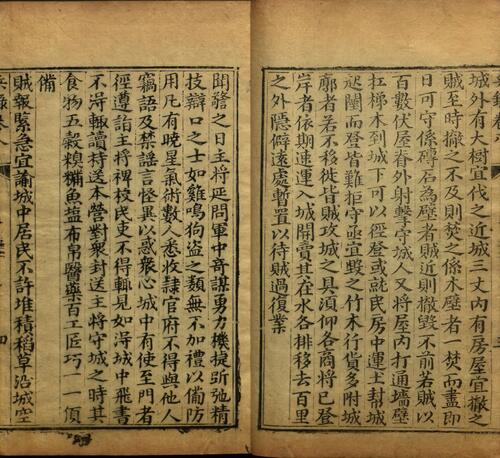 城外有大樹宜伐之近城三丈內有房屋宜撤之
賊至時撤之不及則焚之係木壁者一焚而盡即
日可守係磚石為壁者賊近則撤毀不前若賊以
百數伏屋脊外射擊守城人又將屋內打通墻壁
扛梯木到城下可以徑登或就民房中運土封城
而登皆難拒守亟宜毀之竹木行貨多附城
廓者若不移徙皆賊攻城之具須仰各商將已登
岸者依期速運入城開賣其在水各排移去百里
之外隱僻遠處暫置以待賊過復業
警之日主將延問軍中奇謀勇力機捷斫弛精
技辯口之士如雞鳴狗盜之類無不加禮以備防
用凡有曉星氣術數人悉收隸官府不得與他人
竊語及禁謠言怪異以惑衆心城中有使至門者
徑遵詣主將裨校民吏不得輒見如淂城中飛書
不淂輒讀持送本營對衆封送主將守城之時其
食物五穀糗糒魚塩布帛醫藥百工匠巧一一頂
備
賊報緊急宜諭城中居民不許堆積稻草沿城空
兵錄卷八
四